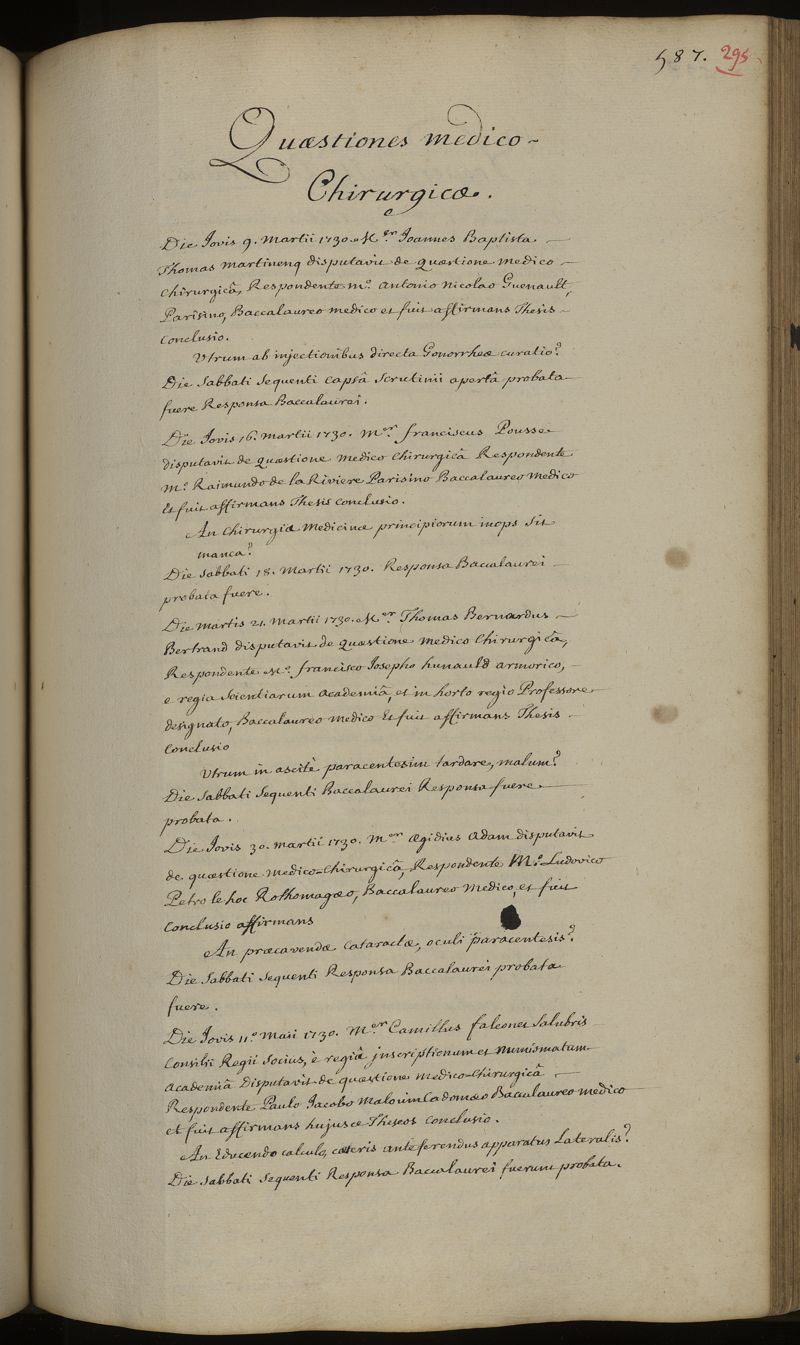 587. 295
Quæstiones medico-
Chirurgicæ.
Die Jovis 9. Martii 1730. Mer. Joannes Baptista
Thomas Martinenq disputavit de quæstione medico
chirurgicâ, Respondente m.o Antonio Nicolao Guenault,
Parisino, Baccalaureo medico et fuit affirmans Thesis
Conclusio.
Utrum ab injectionibus directa Gonorrheæ curatio?
Die Sabbati Sequenti capsâ Scrutinii apertâ probata
fuere Responsa Baccalaurei.
Die Jovis 16. Martii 1730. Mer. franciscus Pousse
disputavit de quæstione medico Chirurgicâ Respondente
m.o Raimundo de la Riviere Parisino Baccalaureo Medico
Et fuit affirmans Thesis conclusio.
An Chirurgia Medicinæ principiorum inops sit
manca?
Die Sabbati 18. Martii 1730. Responsa Baccalaurei
probata fuere.
Die Martis 21. Martii 1730. Mer. Thomas Bernardus
Bertrand disputavit de quæstione medico Chirurgicâ,
Respondente M.o francisco Josepho hunauld armorico,
e regia Scientiarum academiâ, et in horto regio Professore
designato, Baccalaureo medico Et fuit affirmans Thesis
Conclusio
Utrum in ascite paracentesim tardare, malum?
Die Sabbati Sequenti Baccalaurei Responsa fuere
probata.
Die Jovis 30. martii 1730. Mer. Ægidius Adam disputavit
de quæstione medico-Chirurgicâ, Respondente M.o Ludovico
Petro le hoc Rothomagæo, Baccalaureo Medico, et fuit
Conclusio affirmans
An præcavendæ Cataractæ, oculi paracentesis?
Die Sabbati Sequenti Responsa Baccalaurei probata
fuere.
Die Jovis 11.o Maii 1730. Mer Camillus falconet Salubris
Consilii Regii Socius, è regiâ jnscriptionum et Numismatum
Academiâ Disputavit de quæstione medico-Chirurgicâ
Respondente Paulo Jacobo Malouin Cadomæo Baccalaureo medico
et fuit affirmans hujusce Theseos Conclusio.
An Educendo calculo, cæteris anteferendus apparatus Lateralis?
Die Sabbati Sequenti Responsa Baccalaurei fuerunt probata.